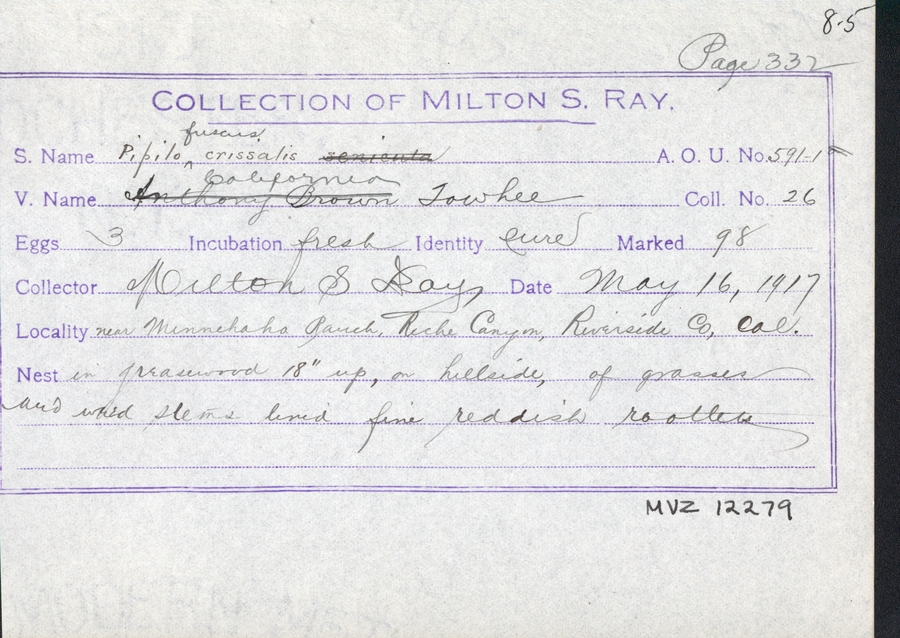 8-5
Page 332
COLLECTION OF MILTON S. RAY.
fuscus
S. Name Pipilo ^ crissalis senicula A. O. U. No. 591-1
California
V. Name Anthony Brown Towhee Coll. No. 26
Eggs 3 Incubation fresh Identity sure Marked 98
Collector Milton S Ray Date May 16, 1917
Locality near Minnehaha Ranch, Riche Canyon, Riverside Co, Cal.
Nest in greasewood 18" up, on hillside, of grasses
and weed stems lined fine reddish rootlets
MVZ 12279